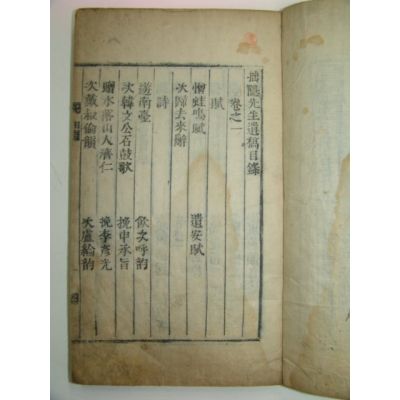 隱先生遺稿目錄
卷之一
賦
憎蛙鳴賦 遺安賦
次歸去來辭
詩
遊南臺 飮次呼韵
次韓文公石鼓歌 挽申承旨
贈水落山人濟仁 挽李彥光
次戴叔倫韻 次盧綸韵